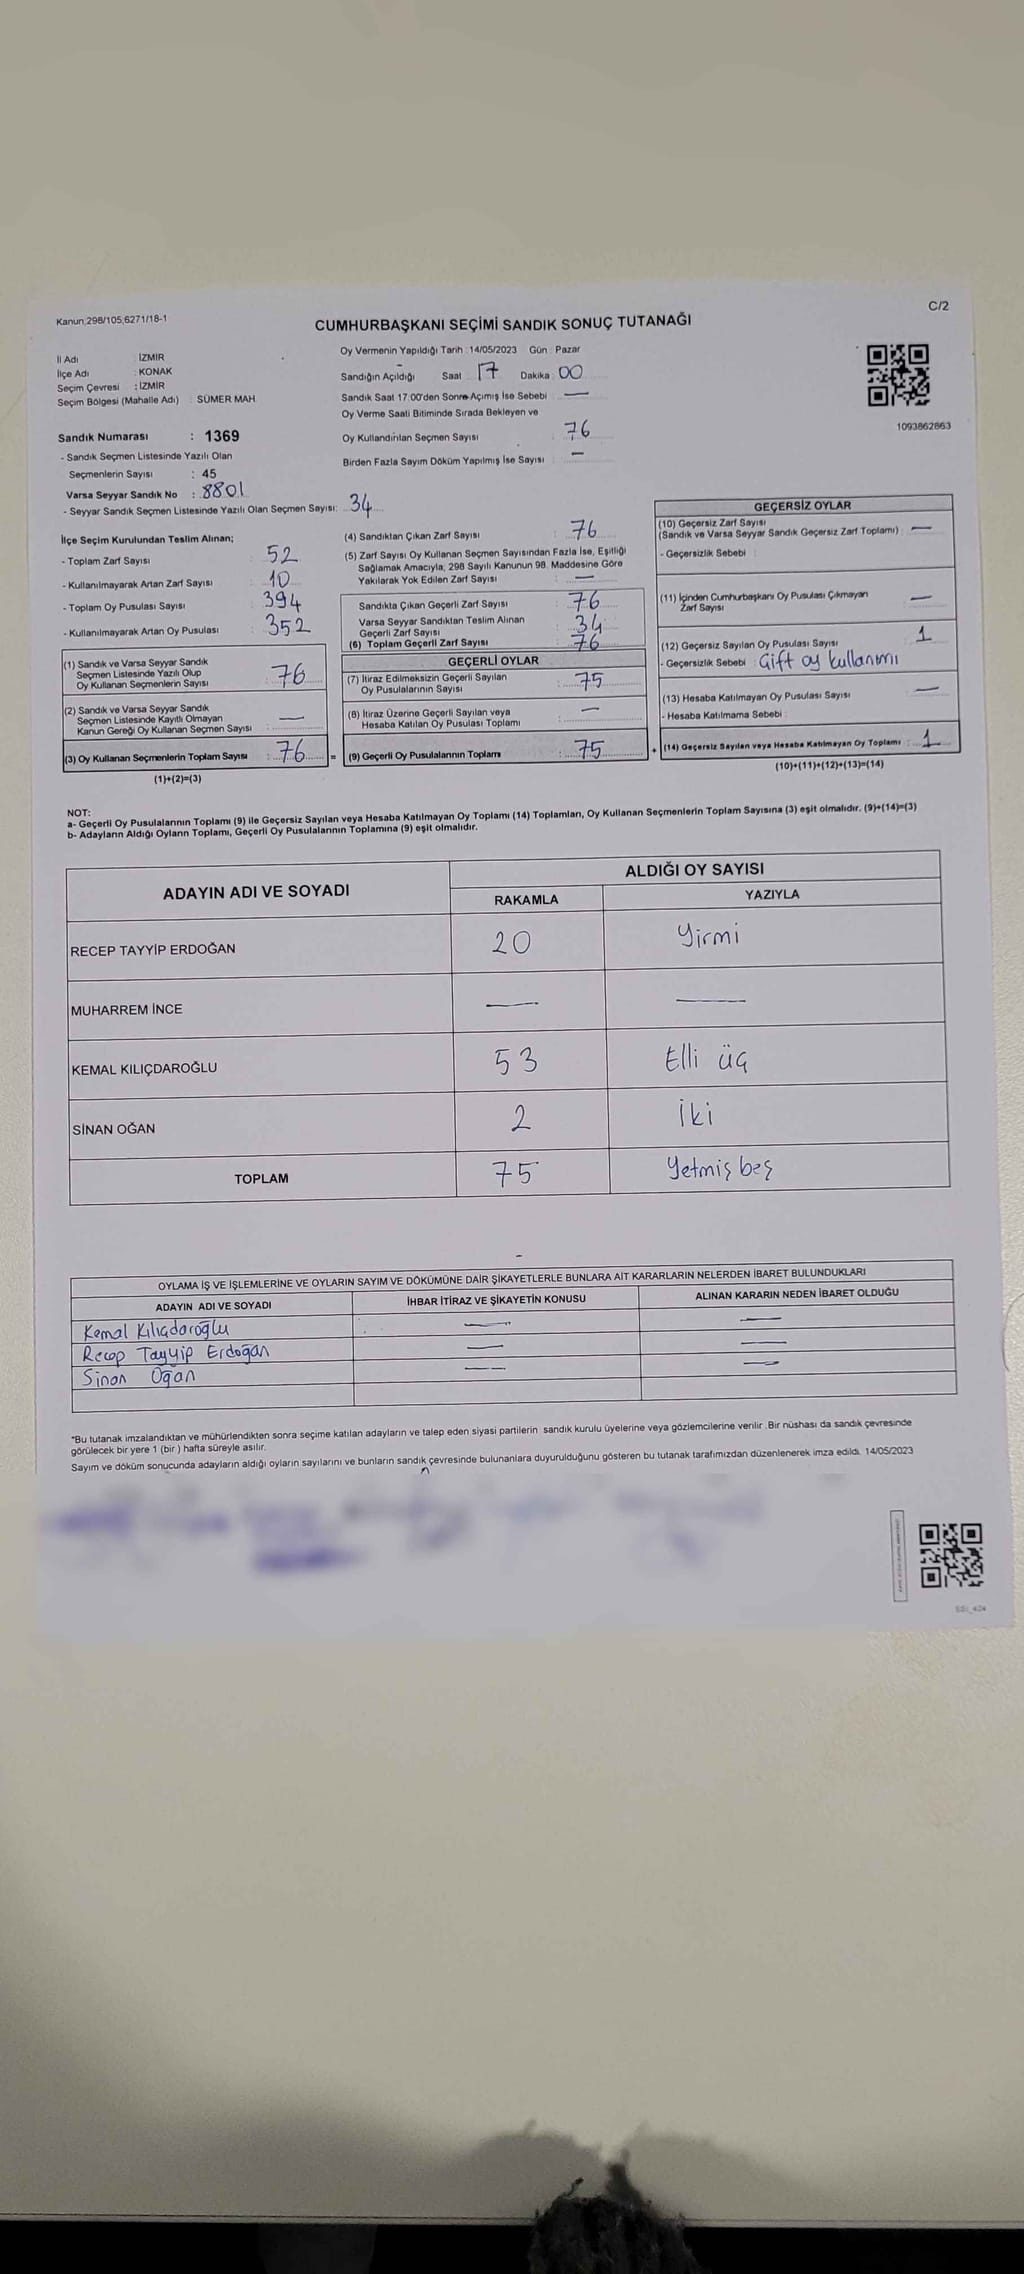 Kanun;298/105,6271/18-1
C/2
CUMHURBAŞKANI SEÇİMİ SANDIK SONUÇ TUTANAĞI
İl Adı : İZMİR
İlçe Adı : KONAK
Seçim Çevresi : İZMİR
Seçim Bölgesi (Mahalle Adı) SÜMER MAH
Sandık Numarası : 1369
- Sandık Seçmen Listesinde Yazılı Olan
Seçmenlerin Sayısı : 45
Varsa Seyyar Sandık No : 8801
- Seyyar Sandık Seçmen Listesinde Yazılı Olan Seçmen Sayısı: 34
Oy Vermenin Yapıldığı Tarih : 14/05/2023 Gün : Pazar
Sandığın Açıldığı Saat 17 Dakika 00
Sandık Saat 17.00'den Sonra Açımış İse Sebebi —
Oy Verme Saati Bitiminde Sırada Bekleyen ve
Oy Kullandırılan Seçmen Sayısı : 76
Birden Fazla Sayım Döküm Yapılmış İse Sayısı : —
1093862863
İlçe Seçim Kurulundan Teslim Alınan;
- Toplam Zarf Sayısı : 52
- Kullanılmayarak Artan Zarf Sayısı : 10
- Toplam Oy Pusulası Sayısı : 394
- Kullanılmayarak Artan Oy Pusulası : 352
(1) Sandık ve Varsa Seyyar Sandık
Seçmen Listesinde Yazılı Olup
Oy Kullanan Seçmenlerin Sayısı : 76
(2) Sandık ve Varsa Seyyar Sandık
Seçmen Listesinde Kayıtlı Olmayan
Kanun Gereği Oy Kullanan Seçmen Sayısı : —
(3) Oy Kullanan Seçmenlerin Toplam Sayısı : 76 =
(1)+(2)=(3)
(4) Sandıktan Çıkan Zarf Sayısı : 76
(5) Zarf Sayısı Oy Kullanan Seçmen Sayısından Fazla İse, Eşitliği
Sağlamak Amacıyla, 298 Sayılı Kanunun 98. Maddesine Göre
Yakılarak Yok Edilen Zarf Sayısı : —
Sandıkta Çıkan Geçerli Zarf Sayısı : 76
Varsa Seyyar Sandıktan Teslim Alınan
Geçerli Zarf Sayısı : 34
(6) Toplam Geçerli Zarf Sayısı : 76
GEÇERLİ OYLAR
(7) İtiraz Edilmeksizin Geçerli Sayılan
Oy Pusulalarının Sayısı : 75
(8) İtiraz Üzerine Geçerli Sayılan veya
Hesaba Katılan Oy Pusulası Toplamı : —
(9) Geçerli Oy Pusulalarının Toplamı : 75 +
GEÇERSİZ OYLAR
(10) Geçersiz Zarf Sayısı
(Sandık ve Varsa Seyyar Sandık Geçersiz Zarf Toplamı) : —
- Geçersizlik Sebebi :
(11) İçinden Cumhurbaşkanı Oy Pusulası Çıkmayan
Zarf Sayısı : —
(12) Geçersiz Sayılan Oy Pusulası Sayısı : 1
- Geçersizlik Sebebi : Çift oy kullanımı
(13) Hesaba Katılmayan Oy Pusulası Sayısı : —
- Hesaba Katılmama Sebebi :
(14) Geçersiz Sayılan veya Hesaba Katılmayan Oy Toplamı : 1
(10)+(11)+(12)+(13)=(14)
NOT:
a- Geçerli Oy Pusulalarının Toplamı (9) ile Geçersiz Sayılan veya Hesaba Katılmayan Oy Toplamı (14) Toplamları, Oy Kullanan Seçmenlerin Toplam Sayısına (3) eşit olmalıdır. (9)+(14)=(3)
b- Adayların Aldığı Oyların Toplamı, Geçerli Oy Pusulalarının Toplamına (9) eşit olmalıdır.
ADAYIN ADI VE SOYADI
ALDIĞI OY SAYISI
RAKAMLA YAZIYLA
RECEP TAYYİP ERDOĞAN 20 Yirmi
MUHARREM İNCE — —
KEMAL KILIÇDAROĞLU 53 Elli üç
SİNAN OĞAN 2 İki
TOPLAM 75 Yetmiş beş
OYLAMA İŞ VE İŞLEMLERİNE VE OYLARIN SAYIM VE DÖKÜMÜNE DAİR ŞİKAYETLERLE BUNLARA AİT KARARLARIN NELERDEN İBARET BULUNDUKLARI
ADAYIN ADI VE SOYADI İHBAR İTİRAZ VE ŞİKAYETİN KONUSU ALINAN KARARIN NEDEN İBARET OLDUĞU
Kemal Kılıçdaroğlu — —
Recep Tayyip Erdoğan — —
Sinan Oğan — —
*Bu tutanak imzalandıktan ve mühürlendikten sonra seçime katılan adayların ve talep eden siyasi partilerin sandık kurulu üyelerine veya gözlemcilerine verilir .Bir nüshası da sandık çevresinde
görülecek bir yere 1 (bir ) hafta süreyle asılır.
Sayım ve döküm sonucunda adayların aldığı oyların sayılarını ve bunların sandık çevresinde bulunanlara duyurulduğunu gösteren bu tutanak tarafımızdan düzenlenerek imza edildi. 14/05/2023